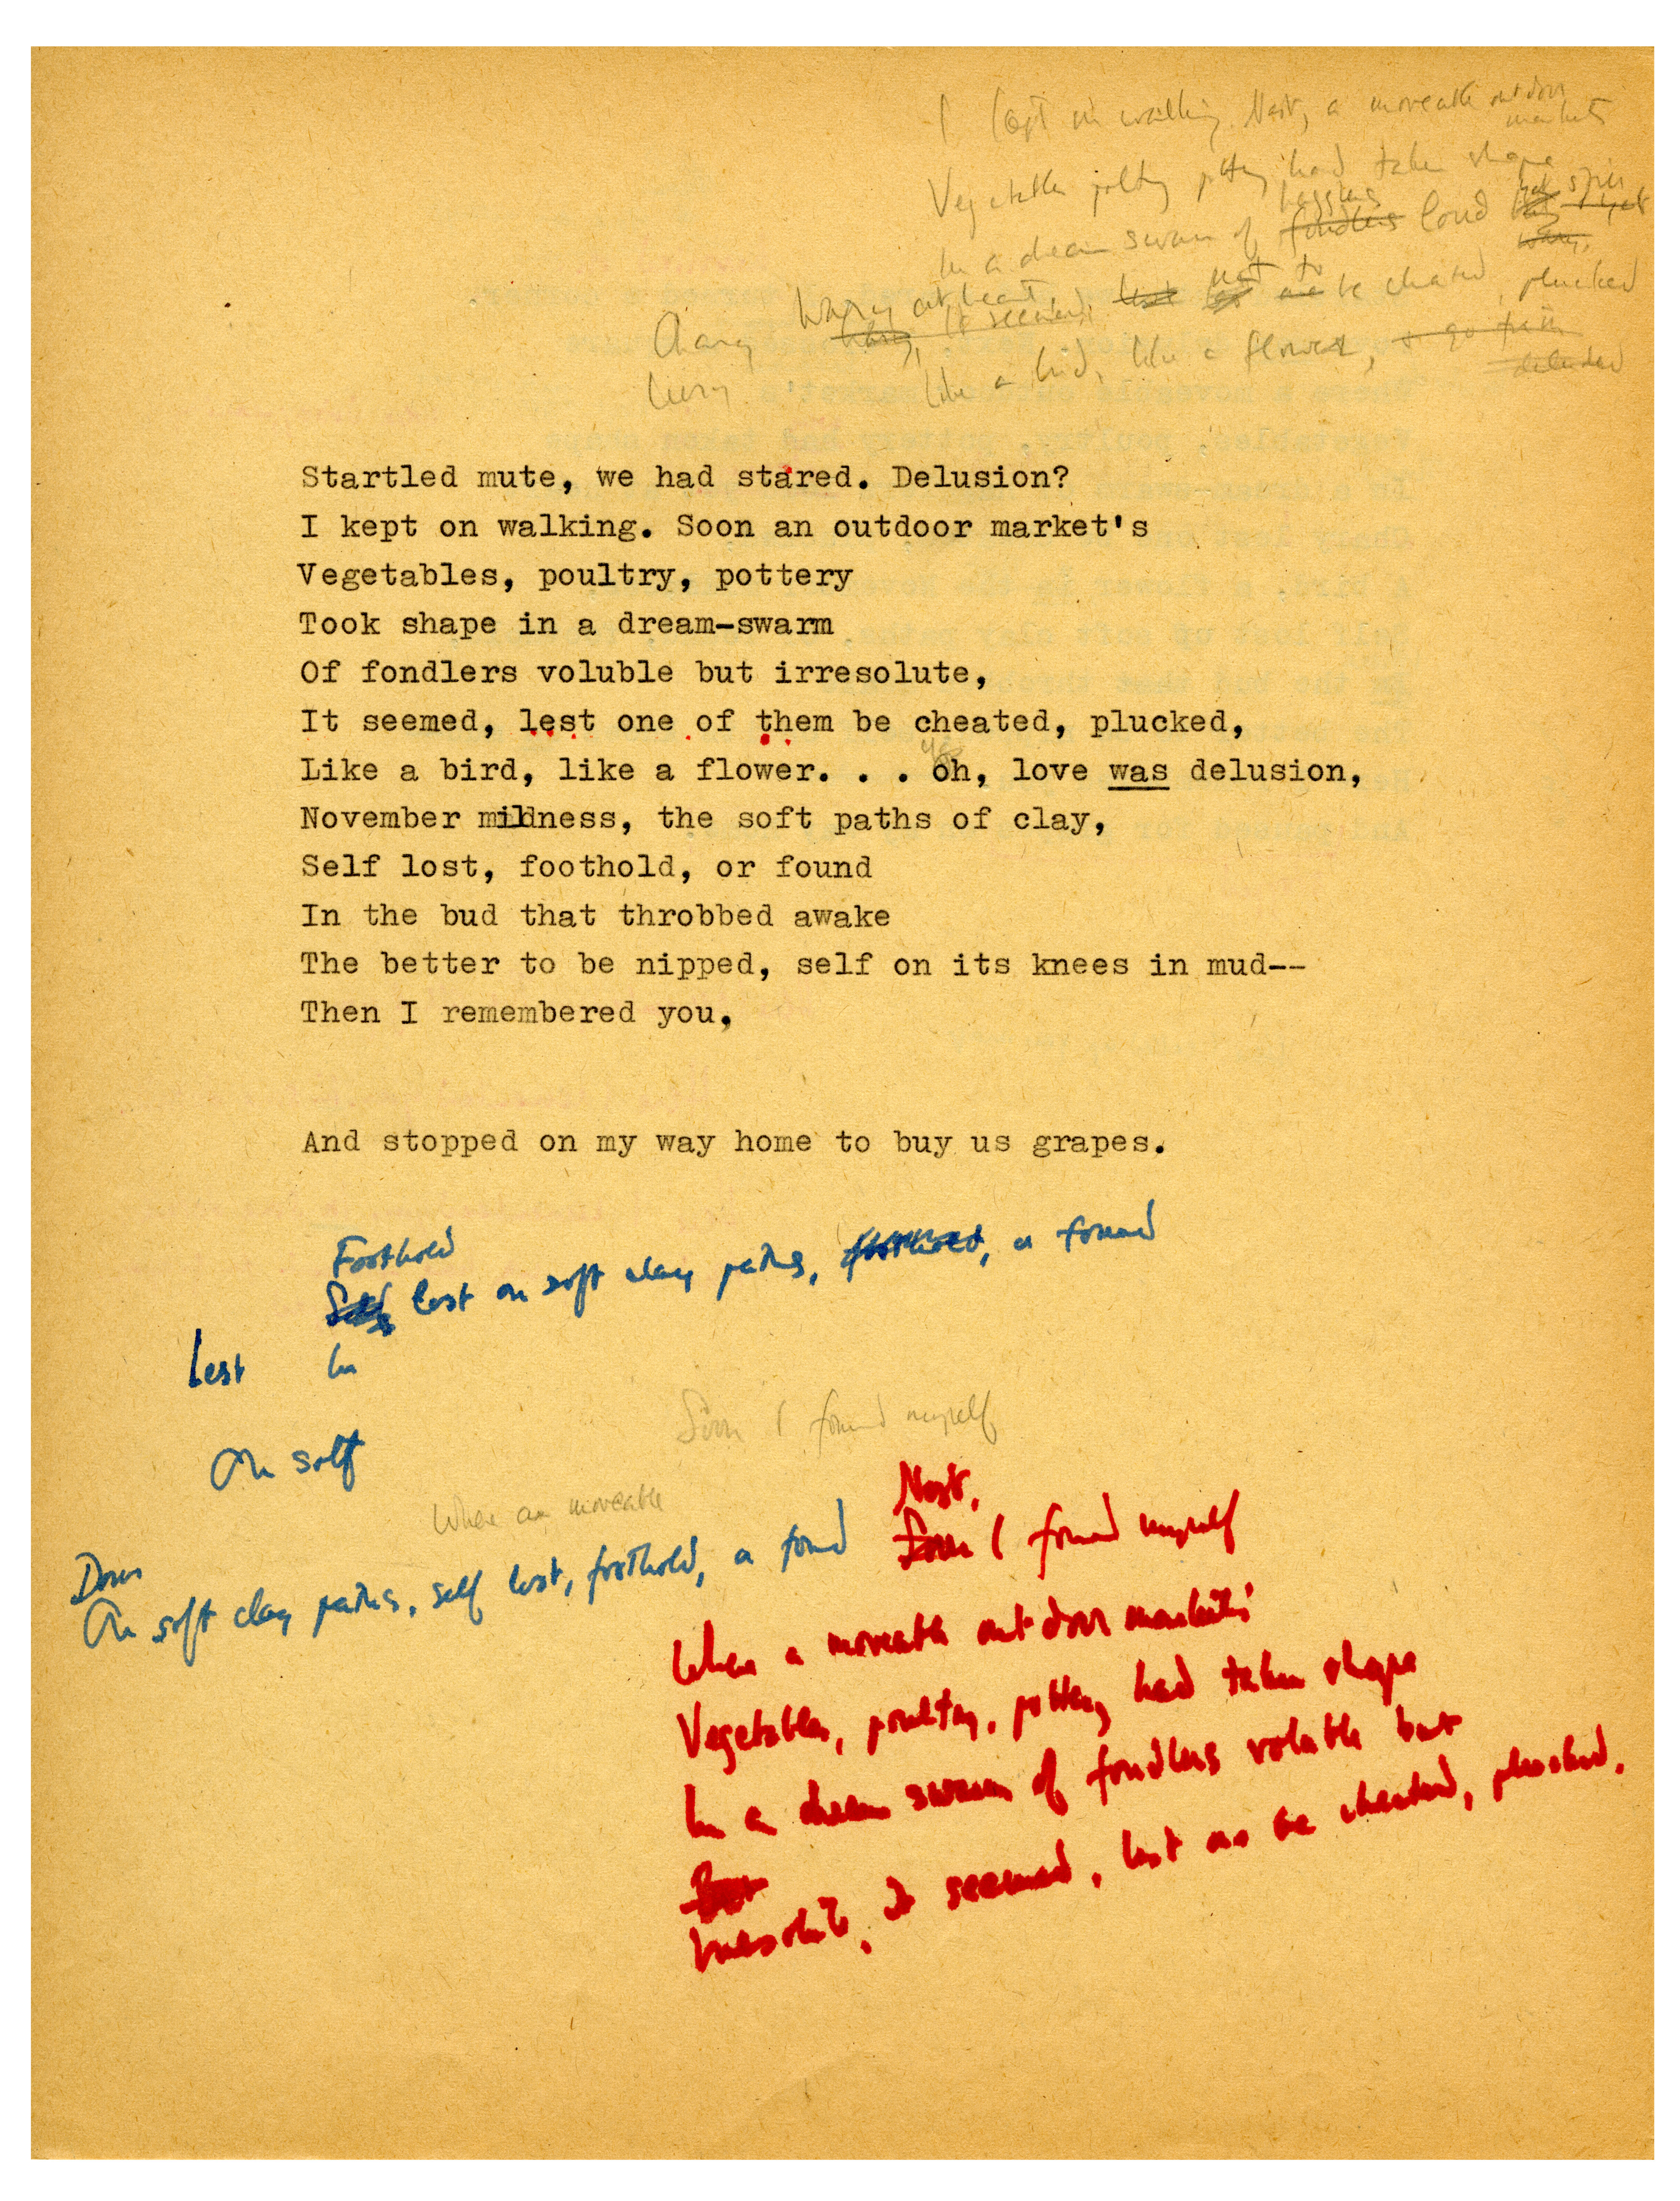 I kept on walking. Next, a moveable outdoor
market's
Vegetables poultry pottery had taken shape
hagglers
In a dream swarm of fondlers loud
wary,
Wary at heart, not to
Chary wary, it seemed, lest be cheated, plucked
Leery Like a bird, like a flower,
deluded
Startled mute, we had stared. Delusion?
I kept on walking. Soon an outdoor market's
Vegetables, poultry, pottery
Took shape in a dream-swarm
Of fondlers voluble but irresolute,
It seemed, lest one of them be cheated, plucked,
yes
Like a bird, like a flower. . . oh, love was delusion,
November mildness, the soft paths of clay,
Self lost, foothold, or found
In the bud that throbbed awake
The better to be nipped, self on its knees in mud--
Then I remembered you,
And stopped on my way home to buy us grapes.
Foothold
Self lost on soft clay paths, foothold, or found
Lest In
On soft
Soon I found myself
When a moveable
Next,
Down
On soft clay paths, self lost, foothold, or found
Soon I found myself
When a moveable outdoor market's
Vegetables, poultry, pottery had taken shape
In a dream swarm of fondlers voluble but
But
Irresolute, it seemed, lest one be cheated, plucked,